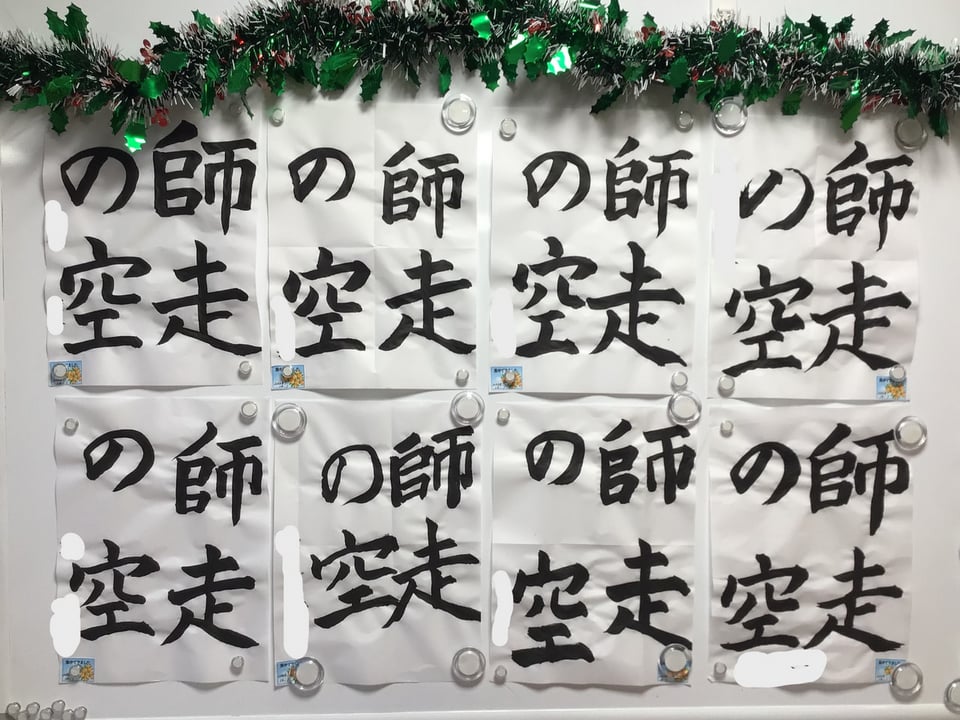 師走
の空
師走
の空
師走
の空
師走
の空
師走
の空
師走
の空
師走
の空
師走
の空